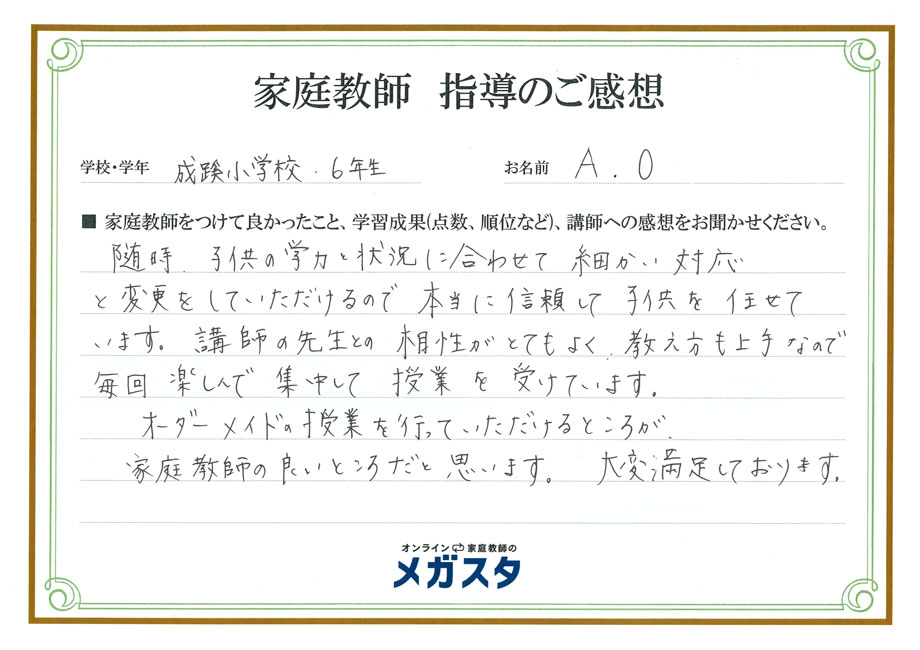 家庭教師 指導のご感想
学校・学年 成蹊小学校・6年生 お名前 A.O
■ 家庭教師をつけて良かったこと、学習成果(点数、順位など)、講師への感想をお聞かせください。
随時、子供の学力と状況に合わせて 細かい対応
と変更をしていただけるので 本当に信頼して 子供を任せて
います。講師の先生との相性がとてもよく、教え方も上手なので
毎回 楽しんで 集中して 授業を受けています。
オーダーメイドの授業を行っていただけるところが、
家庭教師の良いところだと思います。 大変満足しております。
オンライン 家庭教師の
メガスタ